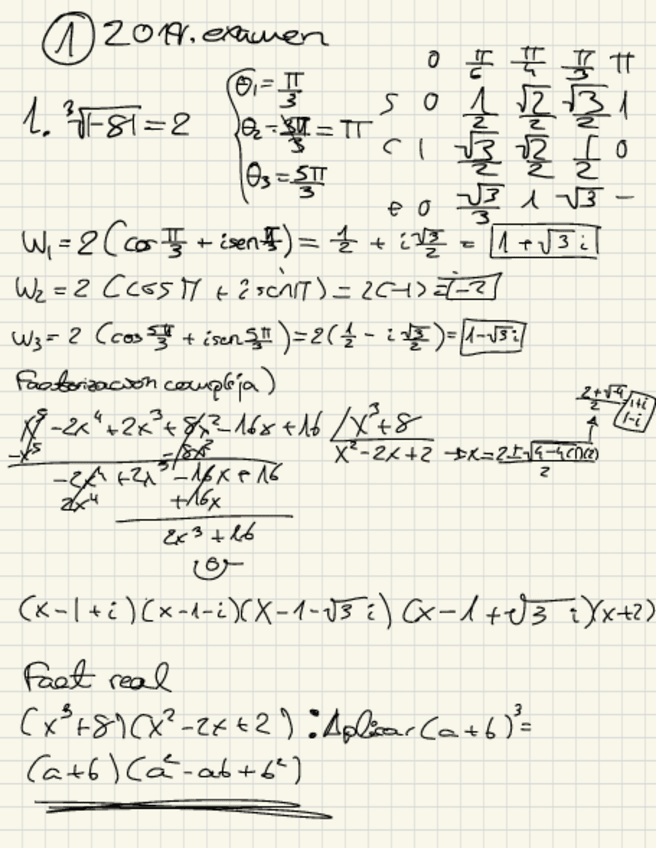 ① 2019. examen
0 π/6 π/4 π/3 π
1. ³√|-8| = 2
θ₁ = π/3
θ₂ = 3π/3 = π
θ₃ = 5π/3
s 0 1/2 √2/2 √3/2 1
c 1 √3/2 √2/2 1/2 0
t 0 √3/3 1 √3 -
W₁ = 2 (cos π/3 + i sen π/3) = 1/2 + i √3/2 = 1 + √3 i
W₂ = 2 (cos π + i sen π) = 2(-1) = -2
W₃ = 2 (cos 5π/3 + i sen 5π/3) = 2(1/2 - i √3/2) = 1-√3 i
Factorización compleja)
x⁵ -2x⁴ +2x³ + 8x² -16x +16 / x³+8
-x⁵ -8x² x²-2x+2 → x = 2±√(4-4(1)(2))/2
2±√-4/2 = 1+i
1-i
-2x⁴ +2x³ -16x + 16
2x⁴ +16x
2x³ + 16
0
(x-1+i)(x-1-i)(x-1-√3 i)(x-1+√3 i)(x+2)
Fact real
(x³+8)(x²-2x+2) : Aplicar (a+b)³ =
(a+b)(a²-ab+b²)